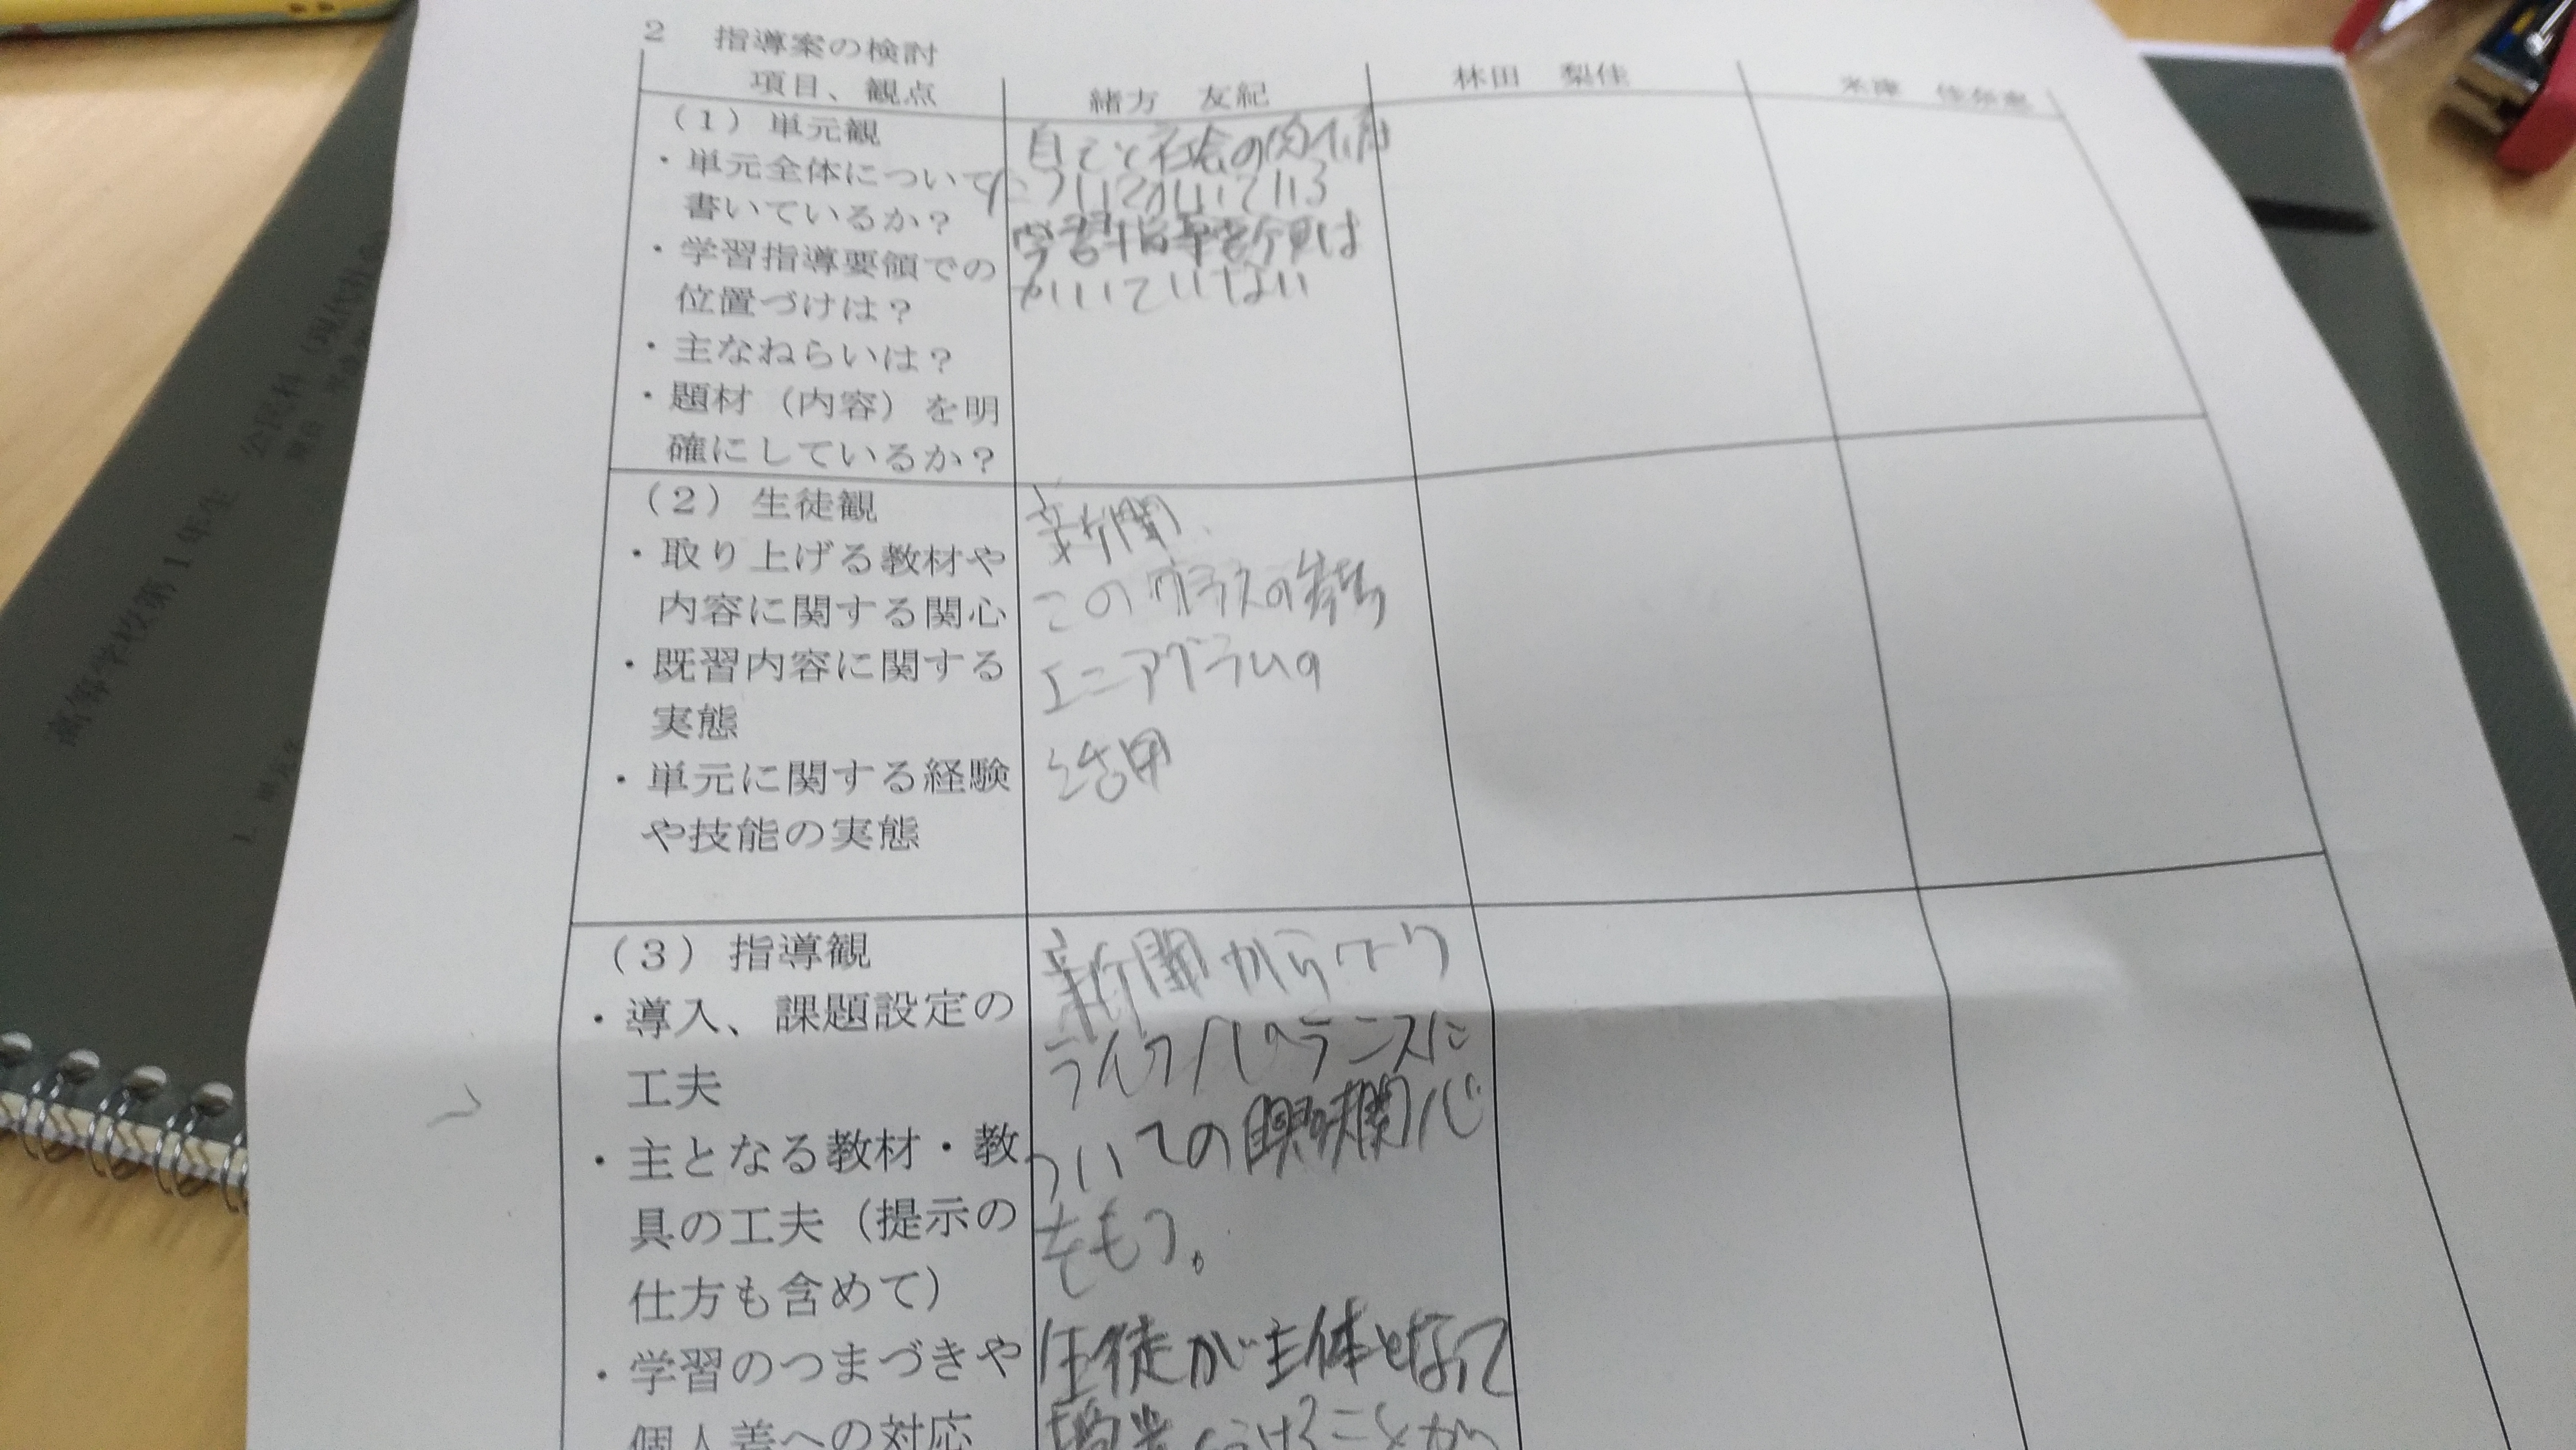 2　指導案の検討
項目、観点
緒方　友紀
林田　梨佳
(1) 単元観
・単元全体について
書いているか?
・学習指導要領での
位置づけは?
・主なねらいは?
・題材(内容)を明
確にしているか?
自己と社会の関わり
についてかいている
学習指導要領は
かいていない
(2) 生徒観
・取り上げる教材や
内容に関する関心
・既習内容に関する
実態
・単元に関する経験
や技能の実態
新聞
このクラスの
エニアグラムの
活用
(3) 指導観
・導入、課題設定の
工夫
・主となる教材・教
具の工夫(提示の
仕方も含めて)
・学習のつまづきや
個人差への対応
新聞からワーク
ライフバランスに
ついての興味関心
をもつ。
生徒が主体となって
ことが
高等学校第1年生
公民科(現代社